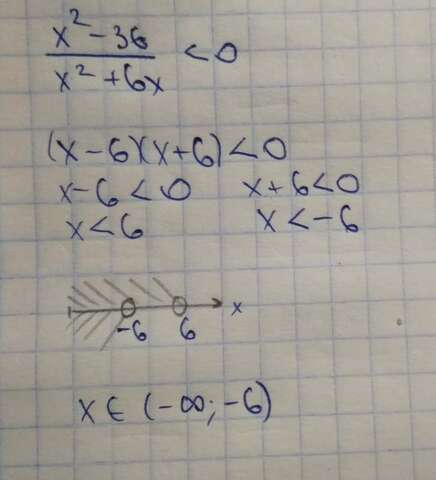 x² - 36
x² + 6x < 0
(x - 6)(x + 6) < 0
x - 6 < 0 x + 6 < 0
x < 6 x < -6
-6 6 x
x ∈ (-∞; -6)